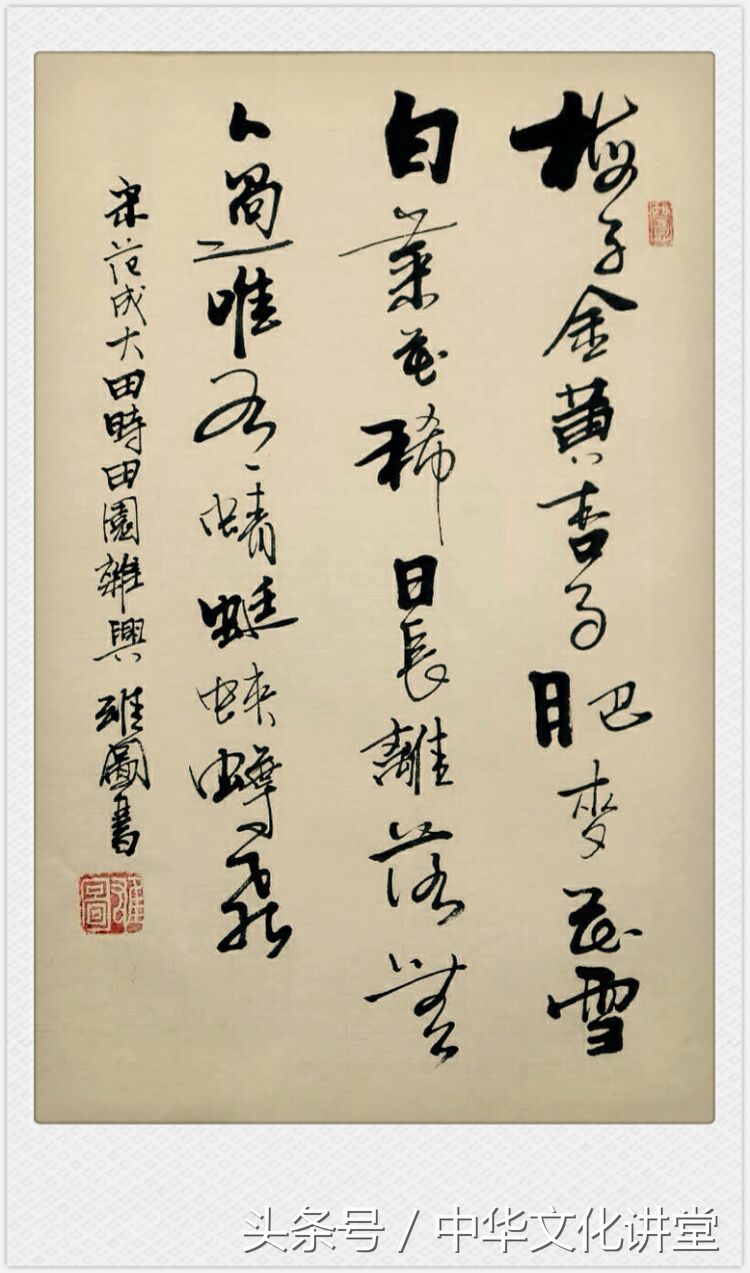 梅子金黄杏子肥麥花雪
白菜花稀日長離落無
人過唯有蜻蜓蛺蝶飛
宋范成大田時田園雜興 雄圖書
头条号 / 中华文化讲堂